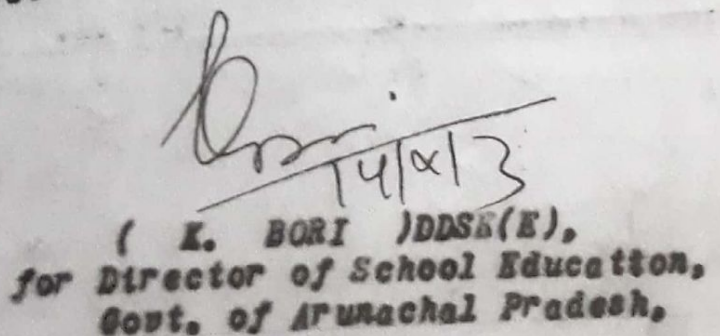 Bori
14/x/3
( K. BORI )DDSE(E),
for Director of School Education,
Govt. of Arunachal Pradesh,